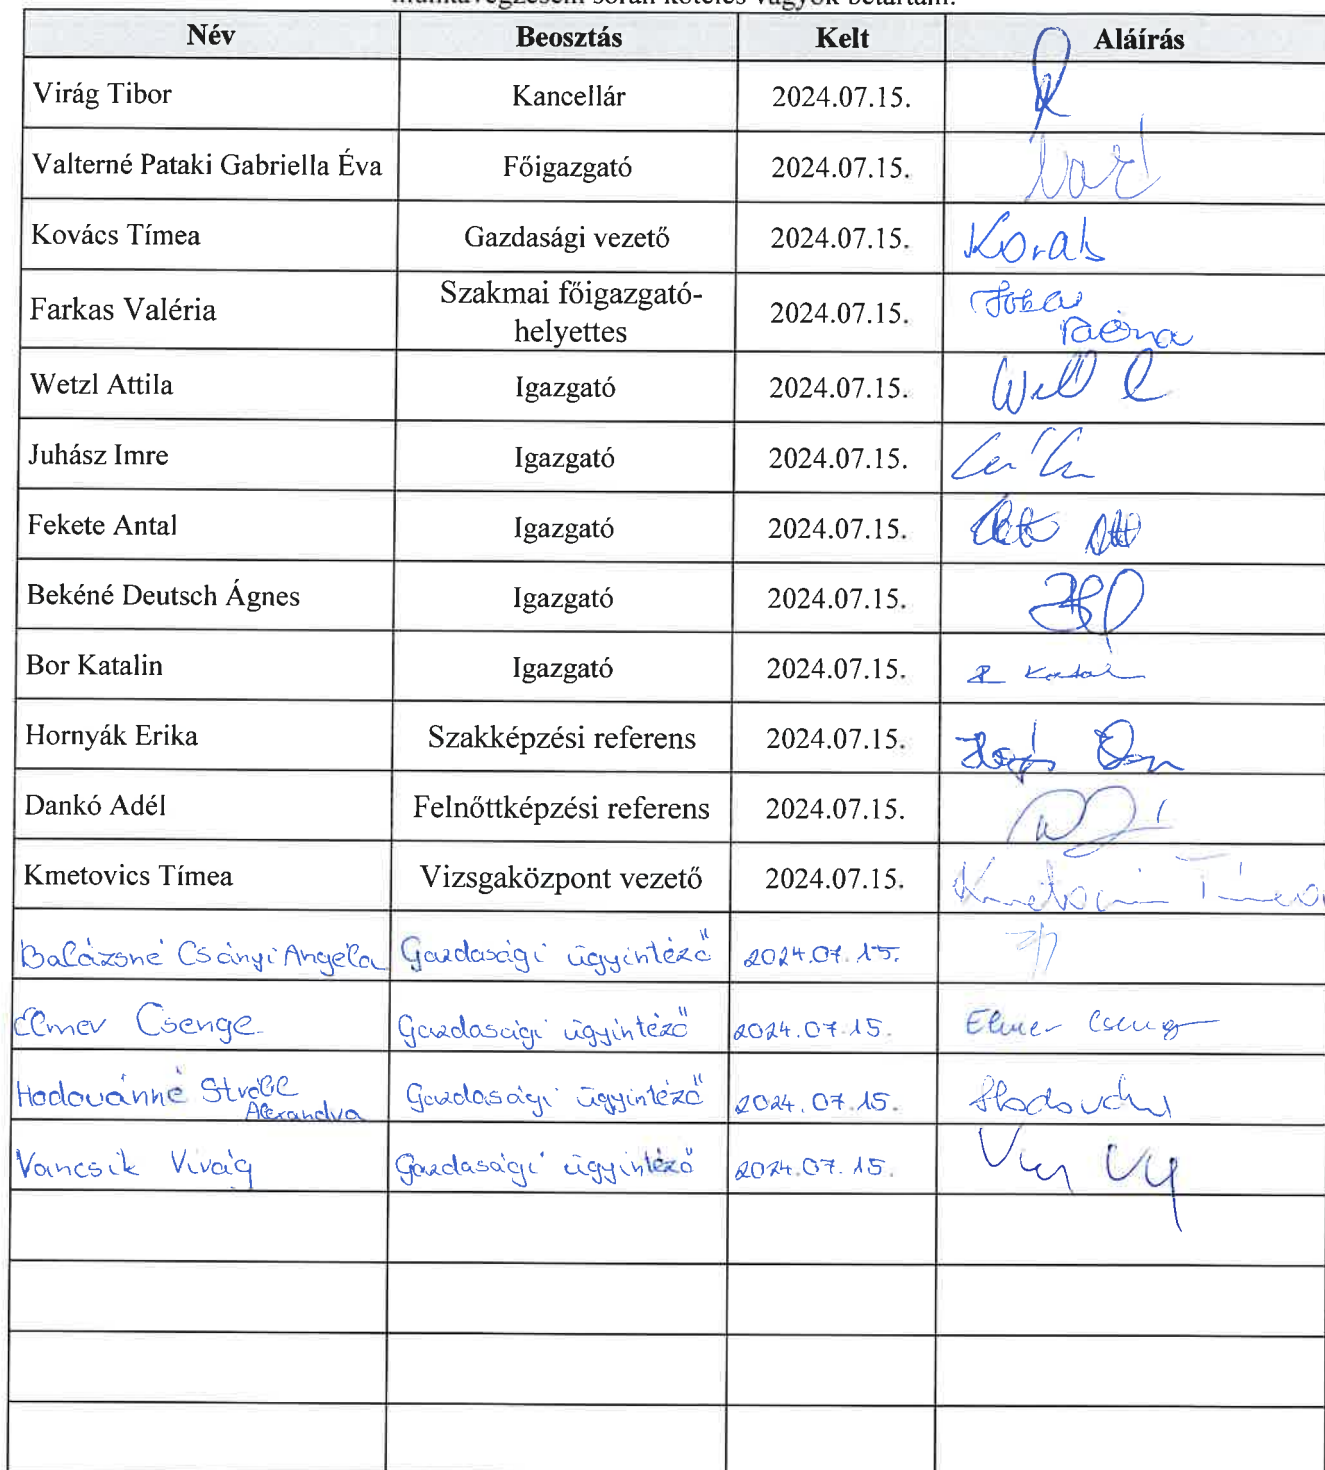 munkavégzésem során köteles vagyok betartani.
Név Beosztás Kelt Aláírás
Virág Tibor Kancellár 2024.07.15.
Valterné Pataki Gabriella Éva Főigazgató 2024.07.15.
Kovács Tímea Gazdasági vezető 2024.07.15.
Farkas Valéria Szakmai főigazgató-
helyettes 2024.07.15.
Wetzl Attila Igazgató 2024.07.15.
Juhász Imre Igazgató 2024.07.15.
Fekete Antal Igazgató 2024.07.15.
Bekéné Deutsch Ágnes Igazgató 2024.07.15.
Bor Katalin Igazgató 2024.07.15.
Hornyák Erika Szakképzési referens 2024.07.15.
Dankó Adél Felnőttképzési referens 2024.07.15.
Kmetovics Tímea Vizsgaközpont vezető 2024.07.15. Kmetovics Tímea
Balázsné Csányi Angéla Gazdasági ügyintéző 2024.07.15.
Elmer Csenge Gazdasági ügyintéző 2024.07.15. Elmer Csenge
Hodovánné Stróbl
Alexandra Gazdasági ügyintéző 2024.07.15.
Vancsik Virág Gazdasági ügyintéző 2024.07.15.